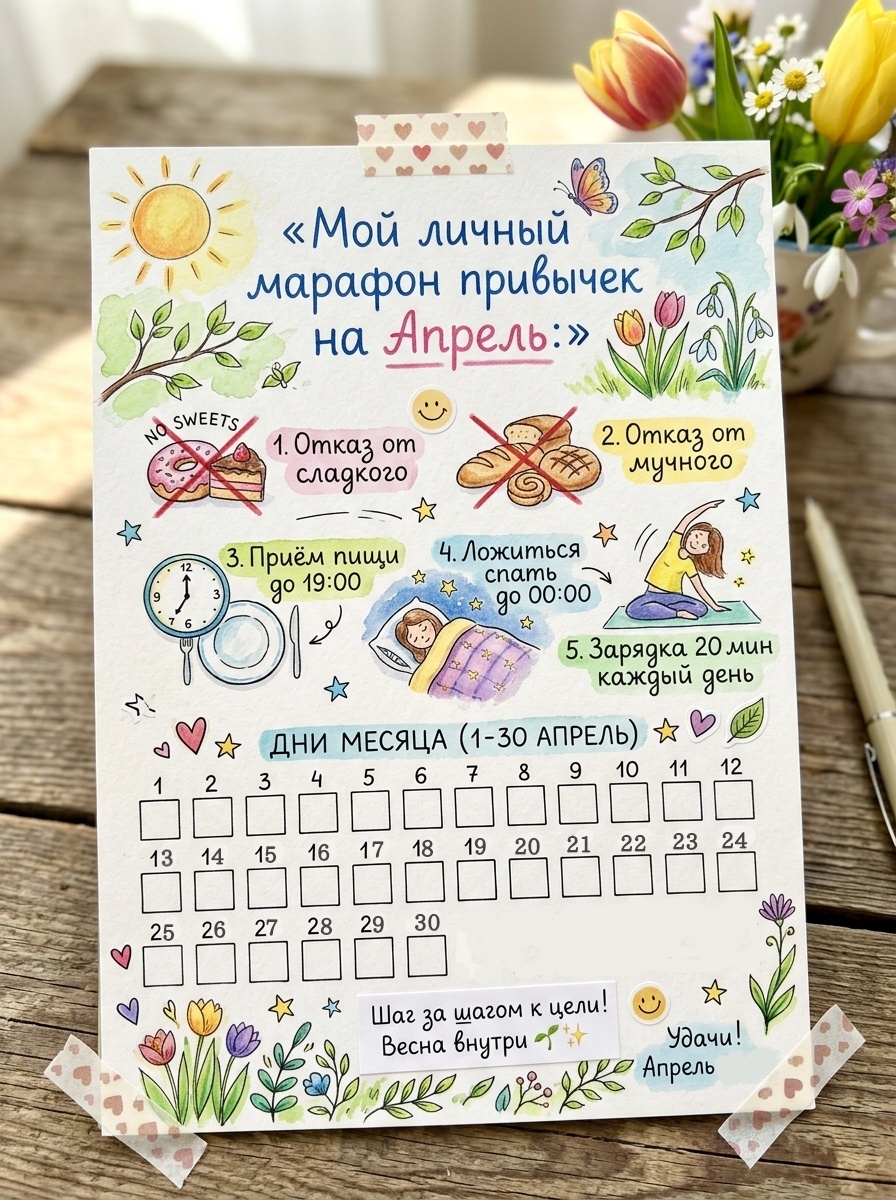 «Мой личный
марафон привычек
на Апрель:»
NO SWEETS
1. Отказ от
сладкого
2. Отказ от
мучного
12
9 3
7 6
3. Приём пищи
до 19:00
4. Ложиться
спать
до 00:00
5. Зарядка 20 мин
каждый день
ДНИ МЕСЯЦА (1-30 АПРЕЛЬ)
1 2 3 4 5 6 7 8 9 10 11 12
13 14 15 16 17 18 19 20 21 22 23 24
25 26 27 28 29 30
Шаг за шагом к цели!
Весна внутри 🌱✨
Удачи!
Апрель